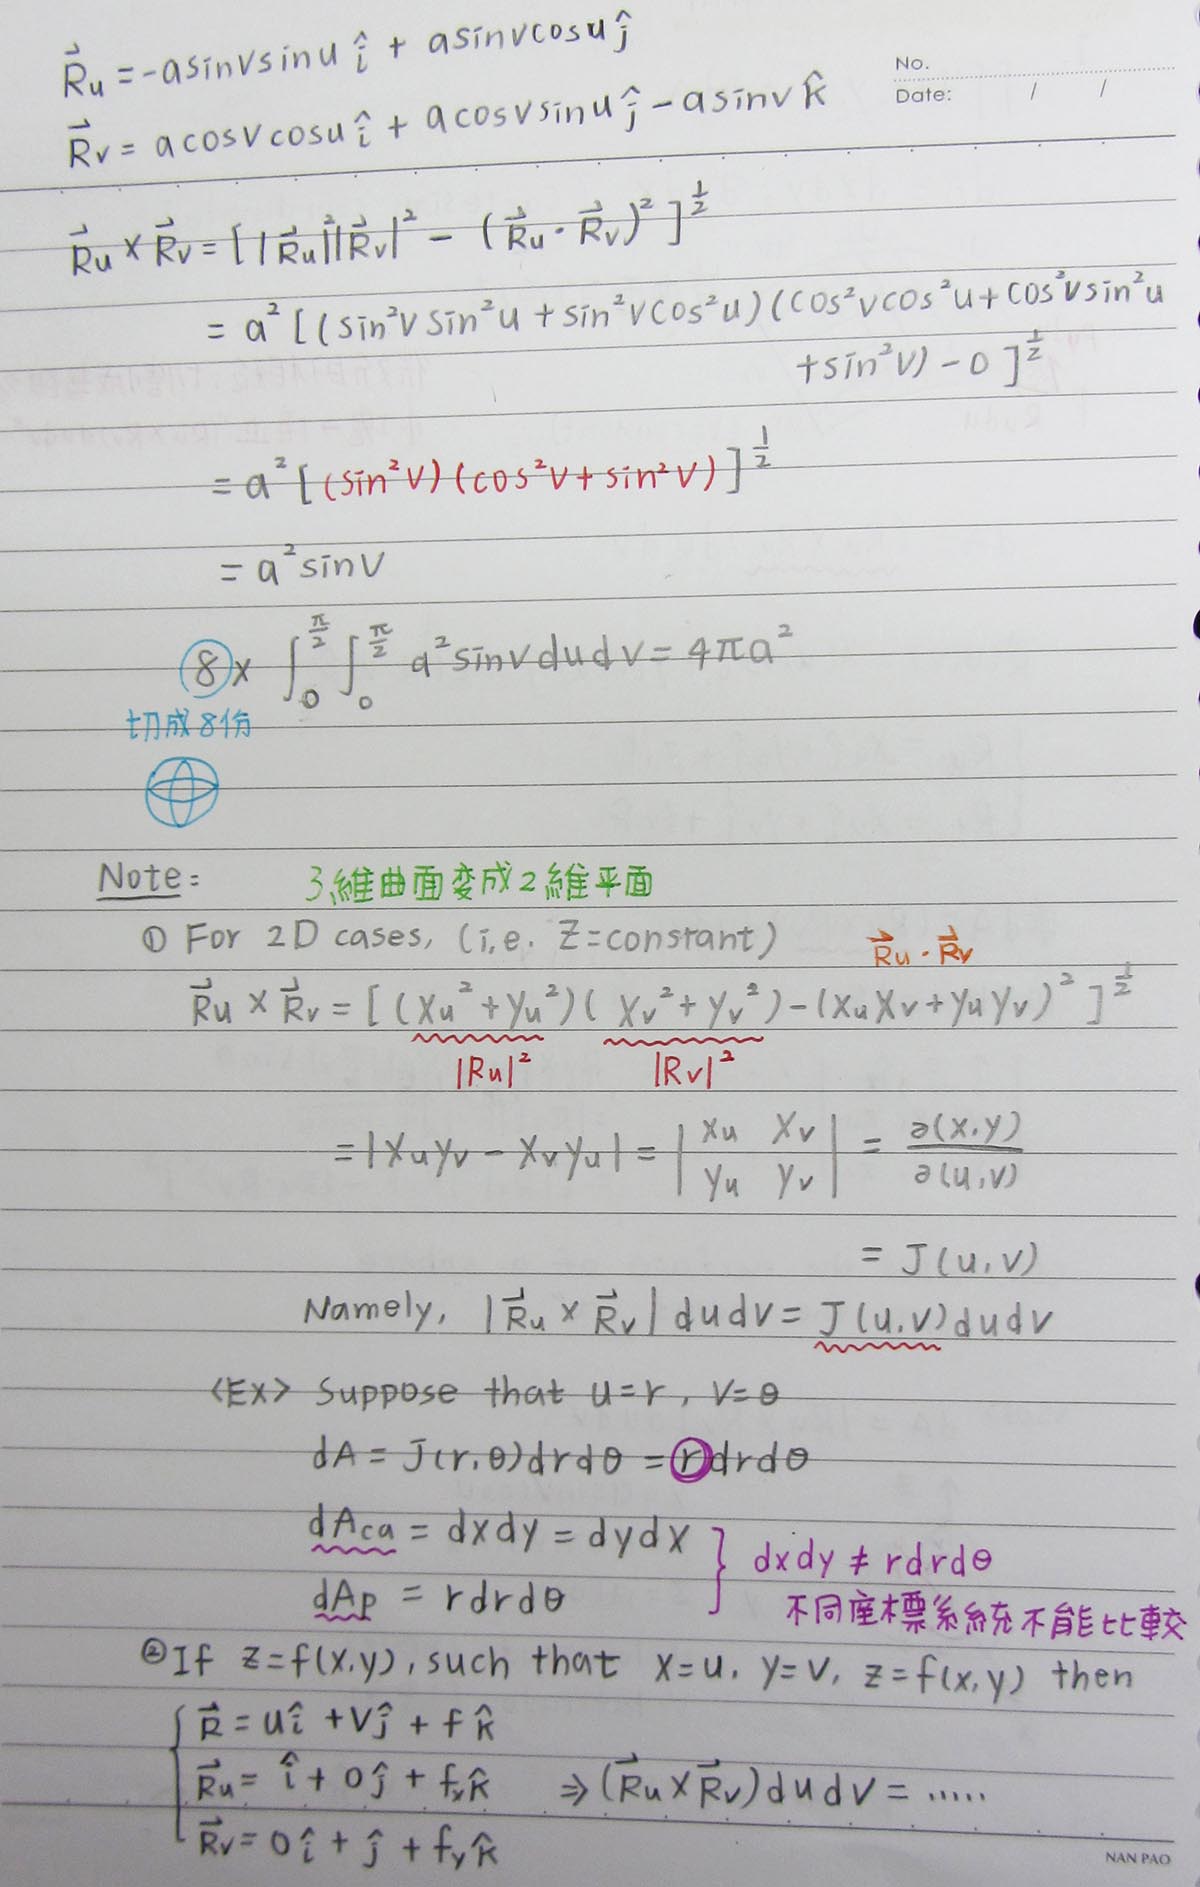 No.
Date: / /
R⃗u = -asinvsinu î + asinvcosu ĵ
R⃗v = acosvcosu î + acosvsinu ĵ - asinv k̂
R⃗u × R⃗v = [ |R⃗u|²|R⃗v|² - (R⃗u · R⃗v)² ]^½
= a² [ (sin²v sin²u + sin²vcos²u) (cos²vcos²u + cos²vsin²u
+ sin²v) - 0 ]^½
= a² [ (sin²v) (cos²v + sin²v) ]^½
= a²sinv
8 × ∫₀^{π/2} ∫₀^{π/2} a²sinvdudv = 4πa²
切成8份
Note: 3維曲面变成2維平面
① For 2D cases, (i,e. Z=constant) R⃗u · R⃗v
R⃗u × R⃗v = [ (Xu² + yu²) ( Xv² + yv² ) - (XuXv + yuyv)² ]^½
|Ru|² |Rv|²
= |Xuyv - Xvyu| = | Xu Xv ; yu yv | = ∂(x,y)/∂(u,v)
= J(u,v)
Namely, |R⃗u × R⃗v| dudv = J(u,v)dudv
<Ex> Suppose that u=r, v=θ
dA = J(r,θ)drdθ = rdrdθ
dAca = dxdy = dydx } dxdy ≠ rdrdθ
dAp = rdrdθ 不同座標系統不能比較
② If z=f(x,y), such that x=u, y=v, z=f(x,y) then
{ R⃗ = uî + vĵ + f k̂
R⃗u = î + 0ĵ + fxk̂ ⇒ (R⃗u × R⃗v)dudv = .....
R⃗v = 0î + ĵ + fyk̂
NAN PAO